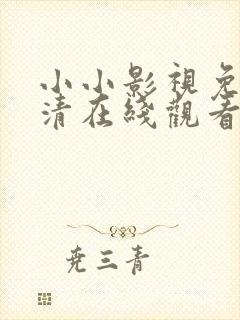 小小影視免
清在綫觀看
尧三青